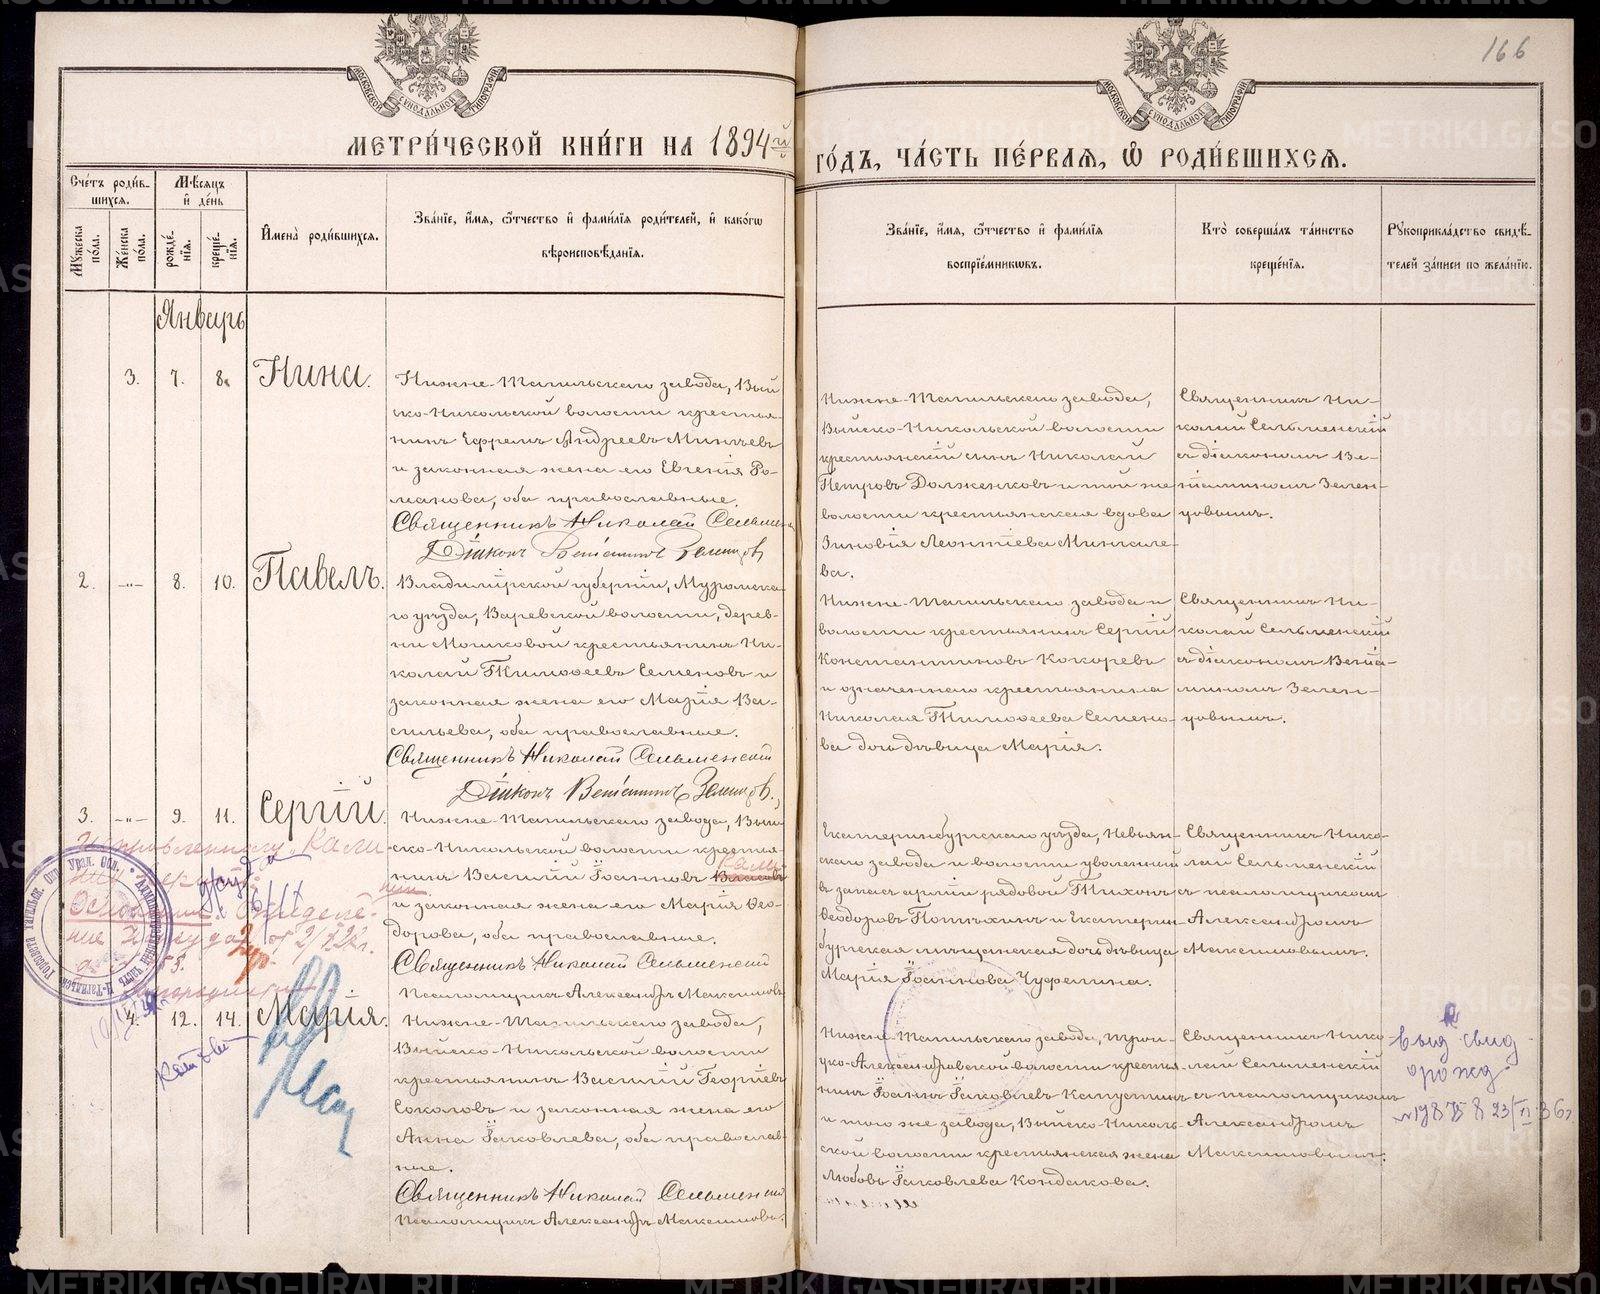 166
МОСКОВСКОЙ СУНОДАЛЬНОЙ ТИПОГРАФІИ
МОСКОВСКОЙ СУНОДАЛЬНОЙ ТИПОГРАФІИ
МЕТРИ́ЧЕСКОЙ КНИ́ГИ НА 1894й
ГО́ДЪ, ЧА́СТЬ ПЕ́РВАЯ, Ѡ РОДИ́ВШИХСЯ.
Сче́тъ роди́в-
шихся.
Му́жеска по́ла.
Же́нска по́ла.
Мѣ́сяцъ
и де́нь
рожде́-
нія.
креще́-
нія.
Имена̀ роди́вшихся.
Зва́нїе, и́мя, ѻ҆́тчество и фами́лїя роди́телей, и како́гѡ
вѣроисповѣ́данїя.
Зва́нїе, и́мя, ѻ҆́тчество и фами́лїя
воспрїе́мникѡвъ.
Кто̀ соверша́лъ та́инство
креще́нїя.
Рꙋкоприкла́дство свидѣ́-
телей за́писи по жела́нїю.
Январь
3. 7. 8. Нина.
Нижне-Тагильскаго завода, Вый
ско-Никольской волости крестья-
нинъ Ефремъ Андреевъ
и законная жена его Евгенія Ро-
манова, оба православные.
Священникъ Николай Сельменск
Діаконъ Веніаминъ Земляновъ
Нижне-Тагильскаго завода,
Выйско-Никольской волости
крестьянскій сынъ Николай
Петровъ Долженковъ и той же
волости крестьянская вдова
Зиновія Леонтіева
ва.
Священникъ Ни-
колай Сельменскій
съ діакономъ Ве-
ніаминомъ
цовымъ.
2. -"- 8. 10. Павелъ.
Владимірской губерніи, Муромска-
го уѣзда, Варевской волости, дерев-
ни Мошковой крестьянинъ Ни-
колай Тимофеевъ Семеновъ и
законная жена его Марія Ва-
сильева, оба православные.
Священникъ Николай Сельменскій
Діаконъ Веніаминъ
Нижне-Тагильскаго завода и
волости крестьянинъ Сергій
Константиновъ Кокоревъ
и означеннаго крестьянина
Николая Тимофеева Семено-
ва дочь дѣвица Марія.
Священникъ Ни-
колай Сельменскій
съ діакономъ Веніа-
миномъ
цовымъ.
3. -"- 9. 11. Сергій.
Нижне-Тагильскаго завода, Вый
ско-Никольской волости крестья-
нинъ Василій Іоанновъ
и законная жена его Марія Ѳео-
дорова, оба православные.
Священникъ Николай Сельменскій
Псаломщикъ Александръ Максимовъ
Екатеринбургскаго уѣзда, Невьян-
скаго завода и волости уволенный
въ запасъ арміи рядовой Тихонъ
Ѳеодоровъ Потѣхинъ и Екатерин-
бургская мѣщанская дочь дѣвица
Марія Іоаннова
Священникъ Нико-
лай Сельменскій
съ псаломщикомъ
Александромъ
Максимовымъ.
4. 12. 14. Марія.
Нижне-Тагильскаго завода,
Выйско-Никольской волости
крестьянинъ Василій Георгіевъ
Соколовъ и законная жена его
Анна Іаковлева, оба православ-
ные.
Священникъ Николай Сельменскій
Псаломщикъ Александръ Максимовъ.
Нижне-Тагильскаго завода, Трои-
цко-Александровской волости крестья-
нинъ Іоаннъ Іаковлевъ Капустинъ
и того же завода, Выйско-Николь-
ской волости крестьянская жена
Любовь Іаковлева Кондакова.
Священникъ Нико-
лай Сельменскій
съ псаломщикомъ
Александромъ
Максимовымъ.
выд свид
о рожд.